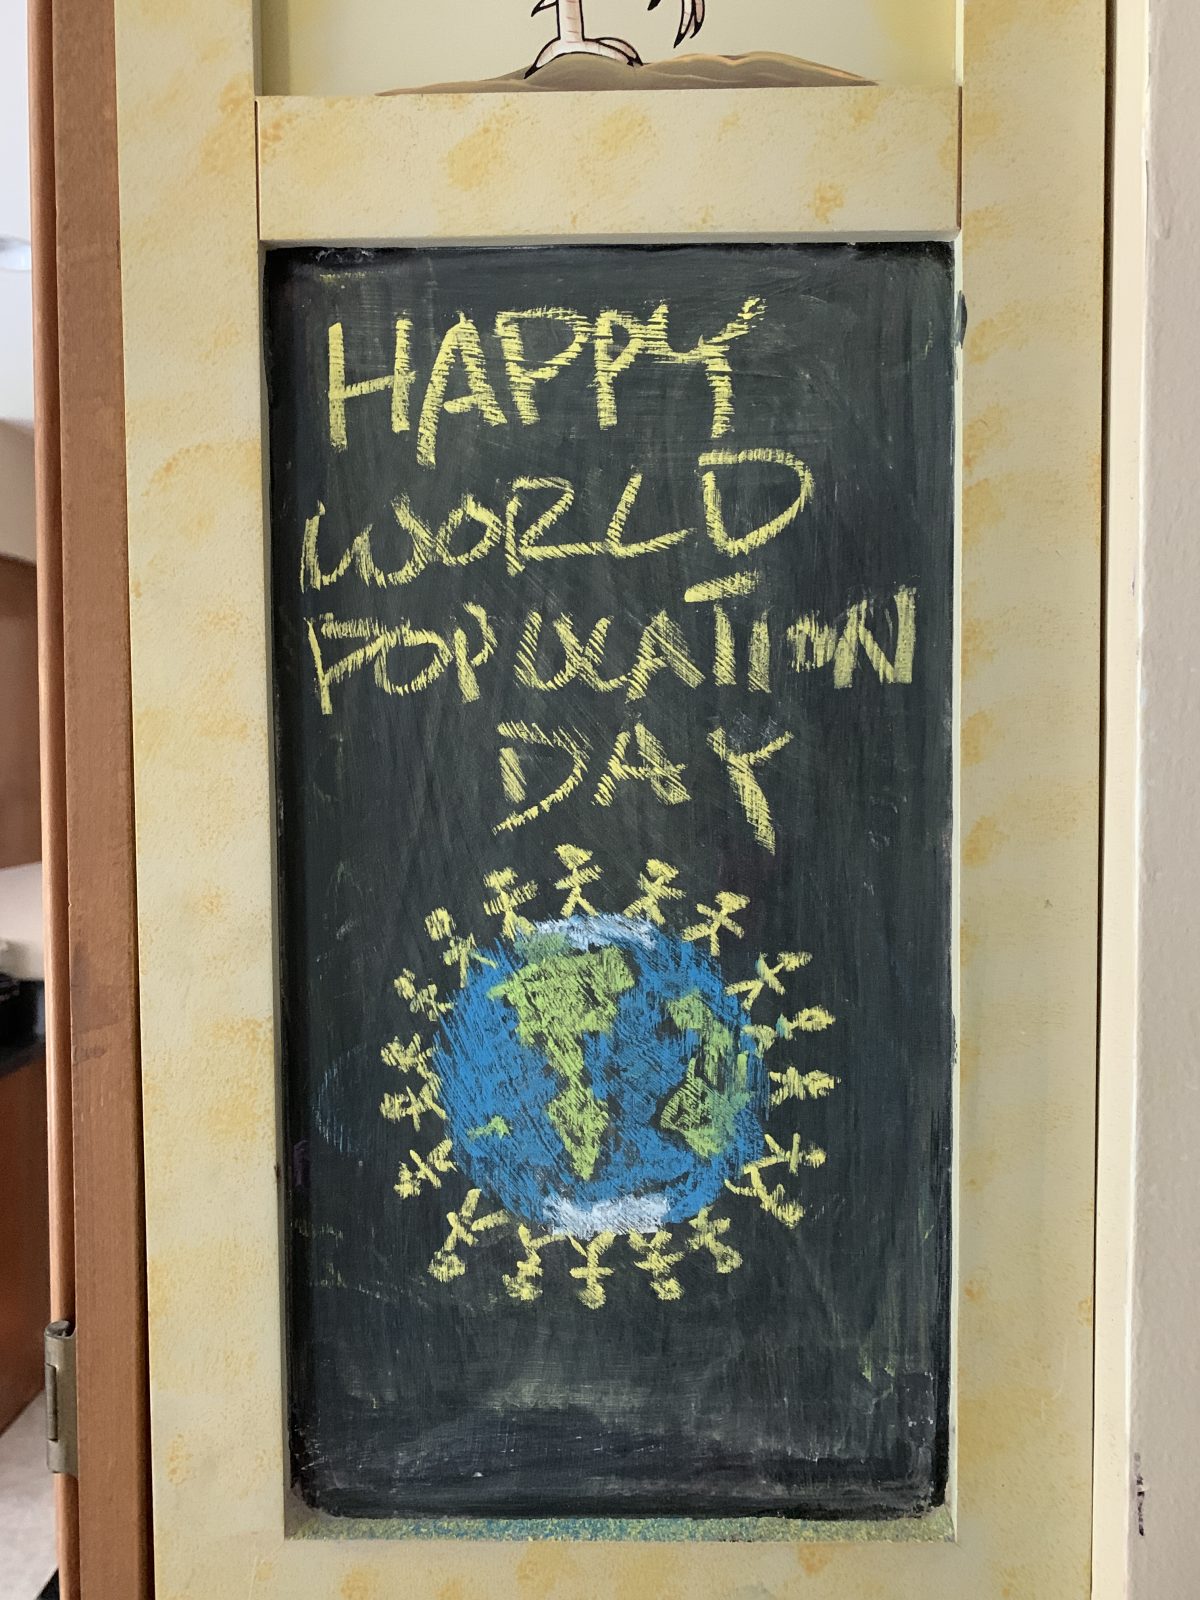 HAPPY
WORLD
POPULATION
DAY